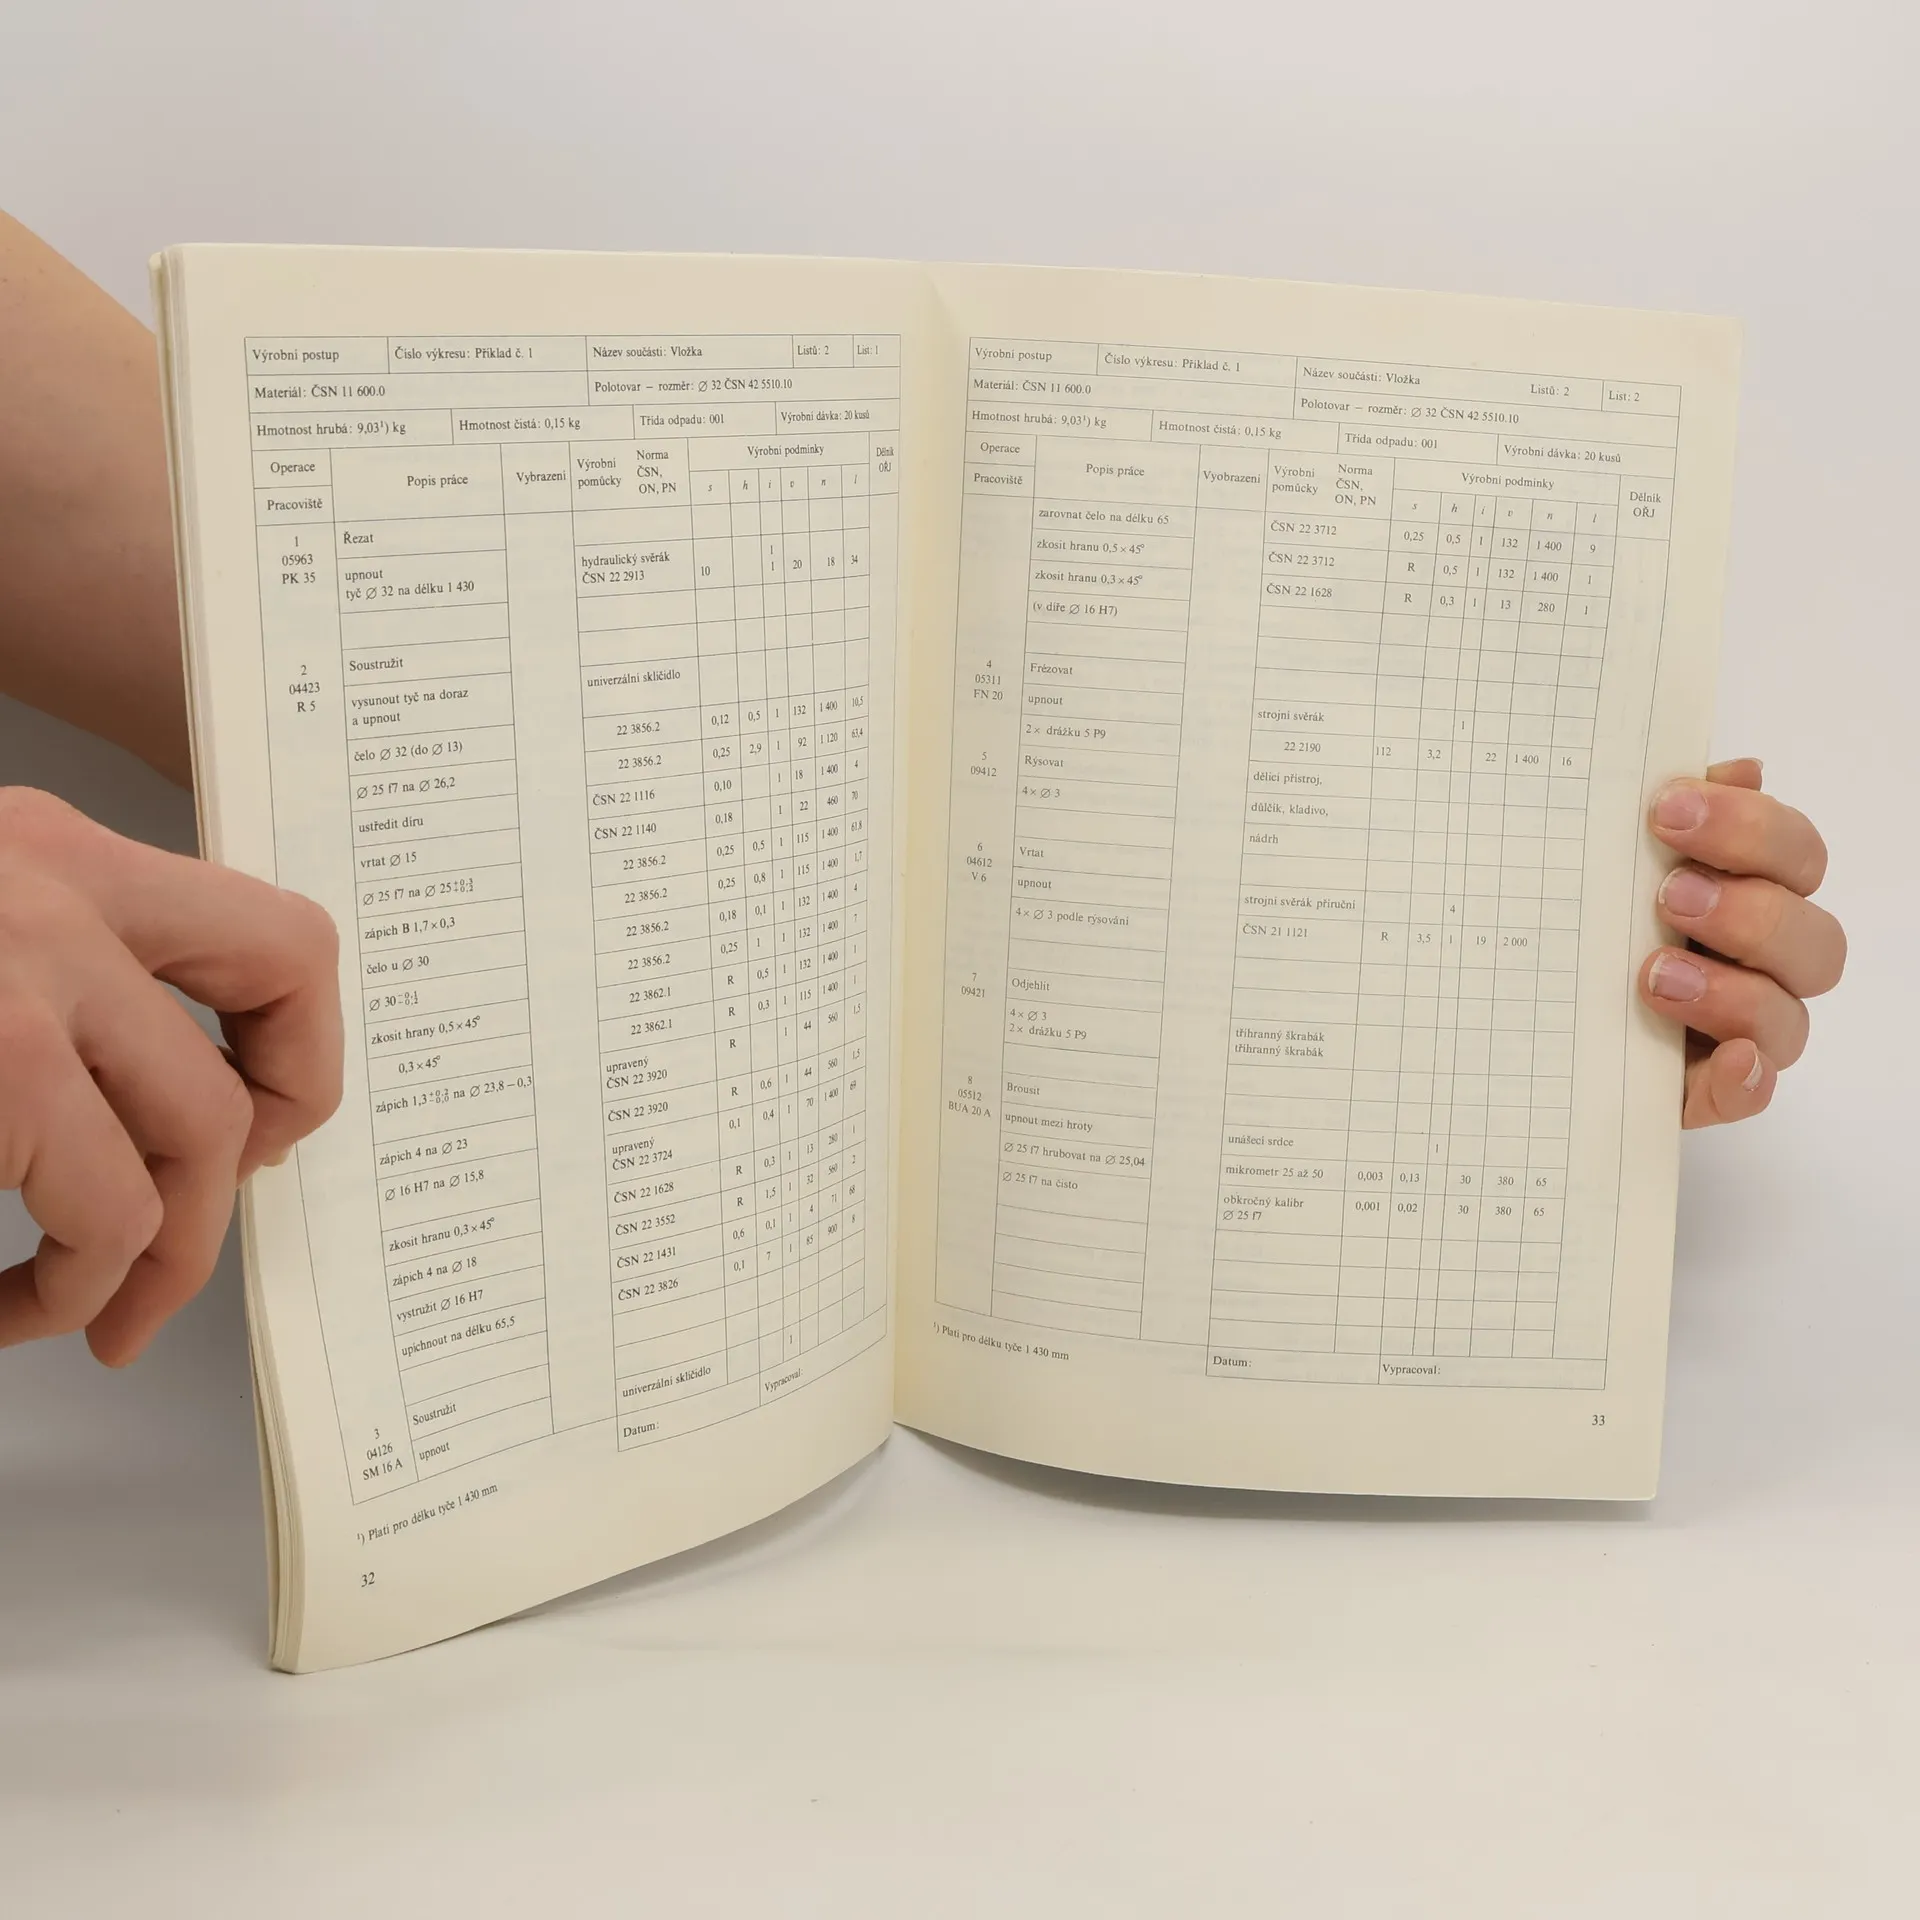 Výrobní postup
Číslo výkresu: Příklad č. 1
Název součásti: Vložka
Listů: 2
List: 1
Materiál: ČSN 11 600.0
Polotovar – rozměr: ∅ 32 ČSN 42 5510.10
Hmotnost hrubá: 9,03¹) kg
Hmotnost čistá: 0,15 kg
Třída odpadu: 001
Výrobní dávka: 20 kusů
Operace
Pracoviště
Popis práce
Vybrazení
Výrobní pomůcky
Norma ČSN, ON, PN
Výrobní podmínky
s h i v n l
Dělník OŘJ
1
05963
PK 35
Řezat
upnout hydraulický svěrák 1
tyč ∅ 32 na délku 1 430 ČSN 22 2913 10 1 20 18 34
2
04423
R 5
Soustružit
vysunout tyč na doraz univerzální sklíčidlo
a upnout
čelo ∅ 32 (do ∅ 13) 22 3856.2 0,12 0,5 1 132 1 400 10,5
∅ 25 f7 na ∅ 26,2 22 3856.2 0,25 2,9 1 92 1 120 63,4
ustředit díru ČSN 22 1116 0,10 1 18 1 400 4
vrtat ∅ 15 ČSN 22 1140 0,18 1 22 460 70
∅ 25 f7 na ∅ 25 +0,3 +0,2 22 3856.2 0,25 0,5 1 115 1 400 61,8
zápich B 1,7 × 0,3 22 3856.2 0,25 0,8 1 115 1 400 1,7
čelo u ∅ 30 22 3856.2 0,18 0,1 1 132 1 400 4
∅ 30 −0,1 −0,2 22 3856.2 0,25 1 1 132 1 400 7
zkosit hrany 0,5 × 45° 22 3862.1 R 0,5 1 132 1 400 1
0,3 × 45° 22 3862.1 R 0,3 1 115 1 400 1
zápich 1,3 na ∅ 23,8 – 0,3 upravený ČSN 22 3920 R 1 44 560 1,5
zápich 4 na ∅ 23 ČSN 22 3920 R 0,6 1 44 560 1,5
∅ 16 H7 na ∅ 15,8 upravený ČSN 22 3724 0,1 0,4 1 70 1 400 69
zkosit hranu 0,3 × 45° ČSN 22 1628 R 0,3 1 13 280 1
zápich 4 na ∅ 18 ČSN 22 3552 R 1,5 1 32 560 2
vystružit ∅ 16 H7 ČSN 22 1431 0,6 0,1 1 4 71 68
upichnout na délku 65,5 ČSN 22 3826 0,1 7 1 85 900 8
3
04126
SM 16 A
Soustružit
upnout univerzální sklíčidlo 1
Datum:
Vypracoval:
¹) Platí pro délku tyče 1 430 mm
32
Výrobní postup
Číslo výkresu: Příklad č. 1
Název součásti: Vložka
Listů: 2
List: 2
Materiál: ČSN 11 600.0
Polotovar – rozměr: ∅ 32 ČSN 42 5510.10
Hmotnost hrubá: 9,03¹) kg
Hmotnost čistá: 0,15 kg
Třída odpadu: 001
Výrobní dávka: 20 kusů
Operace
Pracoviště
Popis práce
Vyobrazení
Výrobní pomůcky
Norma ČSN, ON, PN
Výrobní podmínky
s h i v n l
Dělník OŘJ
zarovnat čelo na délku 65 ČSN 22 3712 0,25 0,5 1 132 1 400 9
zkosit hranu 0,5 × 45° ČSN 22 3712 R 0,5 1 132 1 400 1
zkosit hranu 0,3 × 45° ČSN 22 1628 R 0,3 1 13 280 1
(v díře ∅ 16 H7)
4
05311
FN 20
Frézovat
upnout strojní svěrák 1
2× drážku 5 P9 22 2190 112 3,2 22 1 400 16
5
09412
Rýsovat dělicí přístroj,
4× ∅ 3 důlčík, kladivo,
nádrh
6
04612
V 6
Vrtat
upnout strojní svěrák příruční 4
4× ∅ 3 podle rýsování ČSN 21 1121 R 3,5 1 19 2 000
7
09421
Odjehlit
4× ∅ 3 tříhranný škrabák
2× drážku 5 P9 tříhranný škrabák
8
05512
BUA 20 A
Brousit
upnout mezi hroty unášecí srdce 1
∅ 25 f7 hrubovat na ∅ 25,04 mikrometr 25 až 50 0,003 0,13 30 380 65
∅ 25 f7 na čisto obkročný kalibr ∅ 25 f7 0,001 0,02 30 380 65
¹) Platí pro délku tyče 1 430 mm
Datum:
Vypracoval:
33